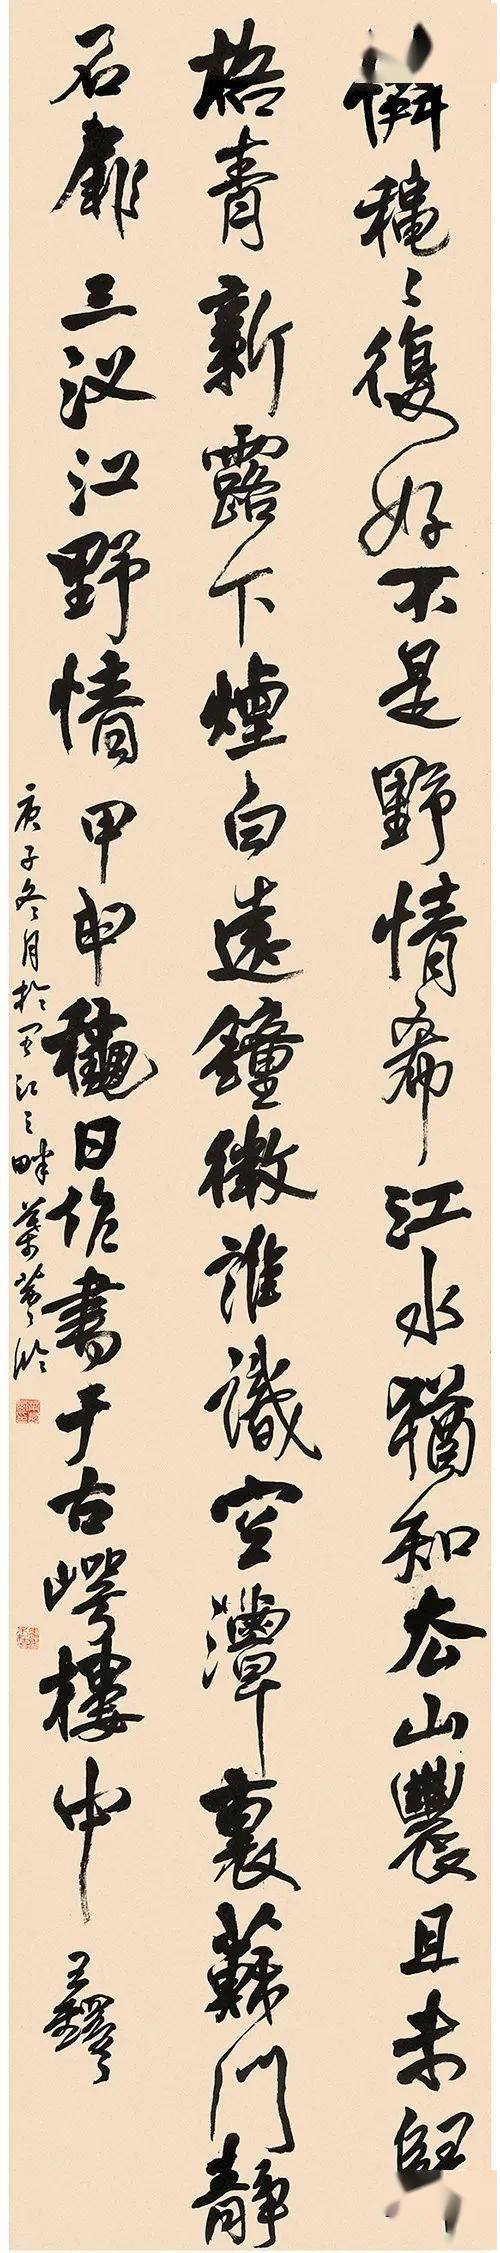 憐穐〻復好不是野情希江水猶知厺山農且未歸
梧青新露下煙白遠鐘微誰識空潭裏蘇門靜
石扉 三汊江野情 甲申穐日作書于古崿樓中 王鐸
庚子冬月於江之畔 臨